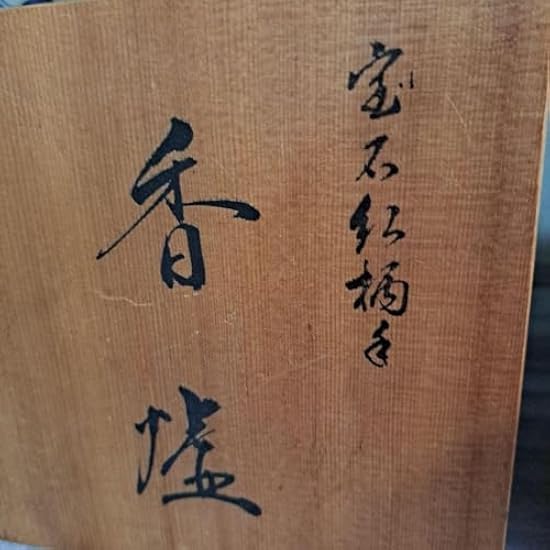 宝石紅柄手
香爐